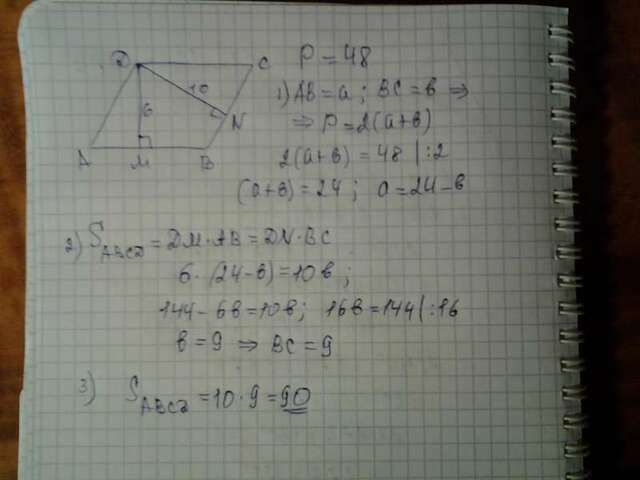 D C P = 48
10
6
N
A M B
1) AB = a; BC = в ⇒
⇒ P = 2(a+в)
2(a+в) = 48 | :2
(a+в) = 24; a = 24 - в
2) S_ABCD = DM · AB = DN · BC
6 · (24 - в) = 10в;
144 - 6в = 10в; 16в = 144 | :16
в = 9 ⇒ BC = 9
3) S_ABCD = 10 · 9 = 90